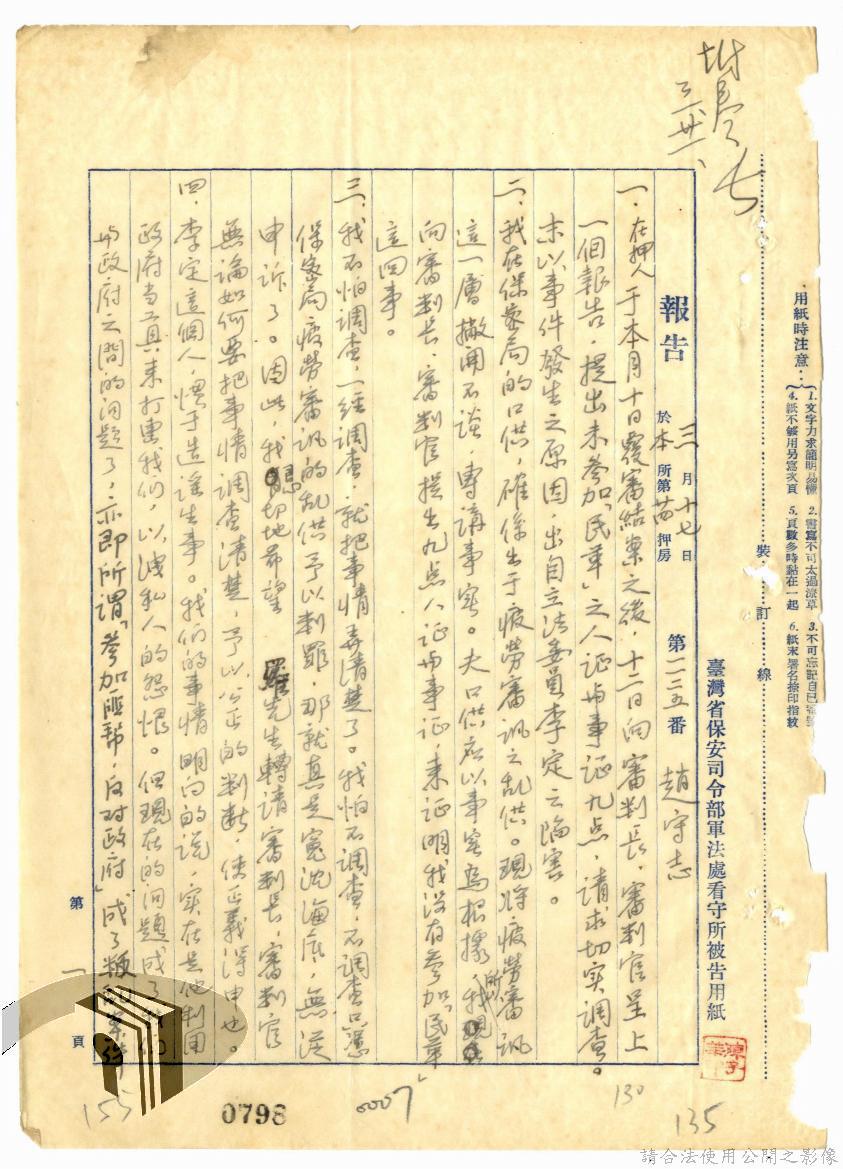 附卷
三、廿一、
裝……訂……線
用紙時注意：
1.文字力求簡明易懂　2.書寫不可太過潦草　3.不可忘記自己
4.紙不够用另寫次頁　5.頁數多時黏在一起　6.紙末署名捺印指紋
臺灣省保安司令部軍法處看守所被告用紙
報告　三月十七日於本所第　押房　第一二三五番　趙守志
一．在押人于本月十日覆審結案之後，十二日向審判長、審判官呈上
一個報告，提出未參加「民革」之人証与事証九点，請求切实調查。
末以事件發生之原因，出自立法委員李定之陷害。
二、我在保密局的口供，確係出于疲劳審訊之乱供。現将疲劳審訊
這一層撇開不談，專講事实。夫口供应以事实為根據，我所
向審判長、審判官提出九点人证与事证，来证明我没有參加「民革」
這回事。
三、我不怕調查，一經調查，就把事情弄清楚了。我怕不調查，不調查只憑
保密局疲勞審訊的乱供予以判罪，那就真是冤沈海底，無從
申訴了。因此，我懇切地希望　羅先生轉請審判長，審判官
無論如何要把事情調查清楚，予以公正的判断，使正義得申也。
四．李定這個人，慣于造謠生事。我们的事情明白的說，实在是他利用
政府当工具来打擊我们，以洩私人的怨恨。但現在的问題成了我们
与政府之間的问題了，亦即所謂「參加匪幫，反对政府」成了叛乱案件
第一頁
155
0798
0007
130
135
請合法使用公開之影像